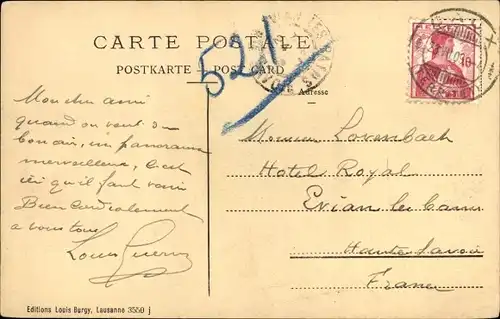 CARTE POSTALE
POSTKARTE - POST CARD
Adresse
521
EVIAN-LES-BAINS
10
Mon cher ami
quand on veut du
bon air, un panorama
merveilleux, c'est
ici qu'il faut venir
Bien cordialement
à vous tous
Louis
Monsieur Lovenbach
Hotel Royal
Evian les bains
Haute Savoie
France
Editions Louis Burgy, Lausanne 3550 j